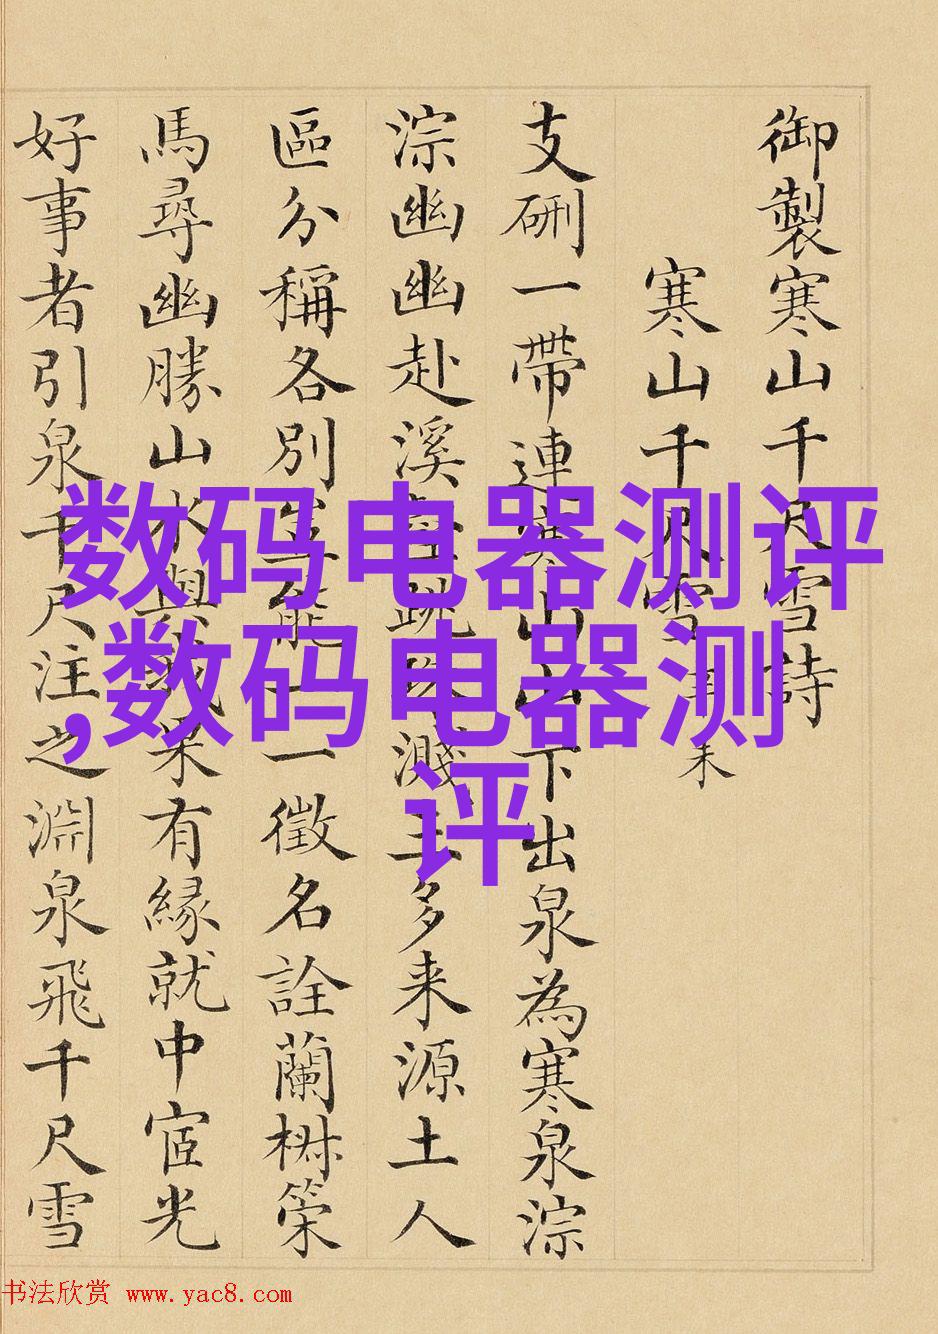 御製寒山千尺雪詩
寒山千尺雪 辛未
支硎一帶連寒山山下出泉為寒泉淙
淙幽幽赴溪 跳珠濺玉多来源土人
區分稱各別 能一一徵名詮蘭椒䇲
馬尋幽勝山水與 果有縁就中宦光
好事者引泉千尺注之淵泉飛千尺雪
数码电器测评
,数码电器测
评
书法欣赏 www.yac8.com